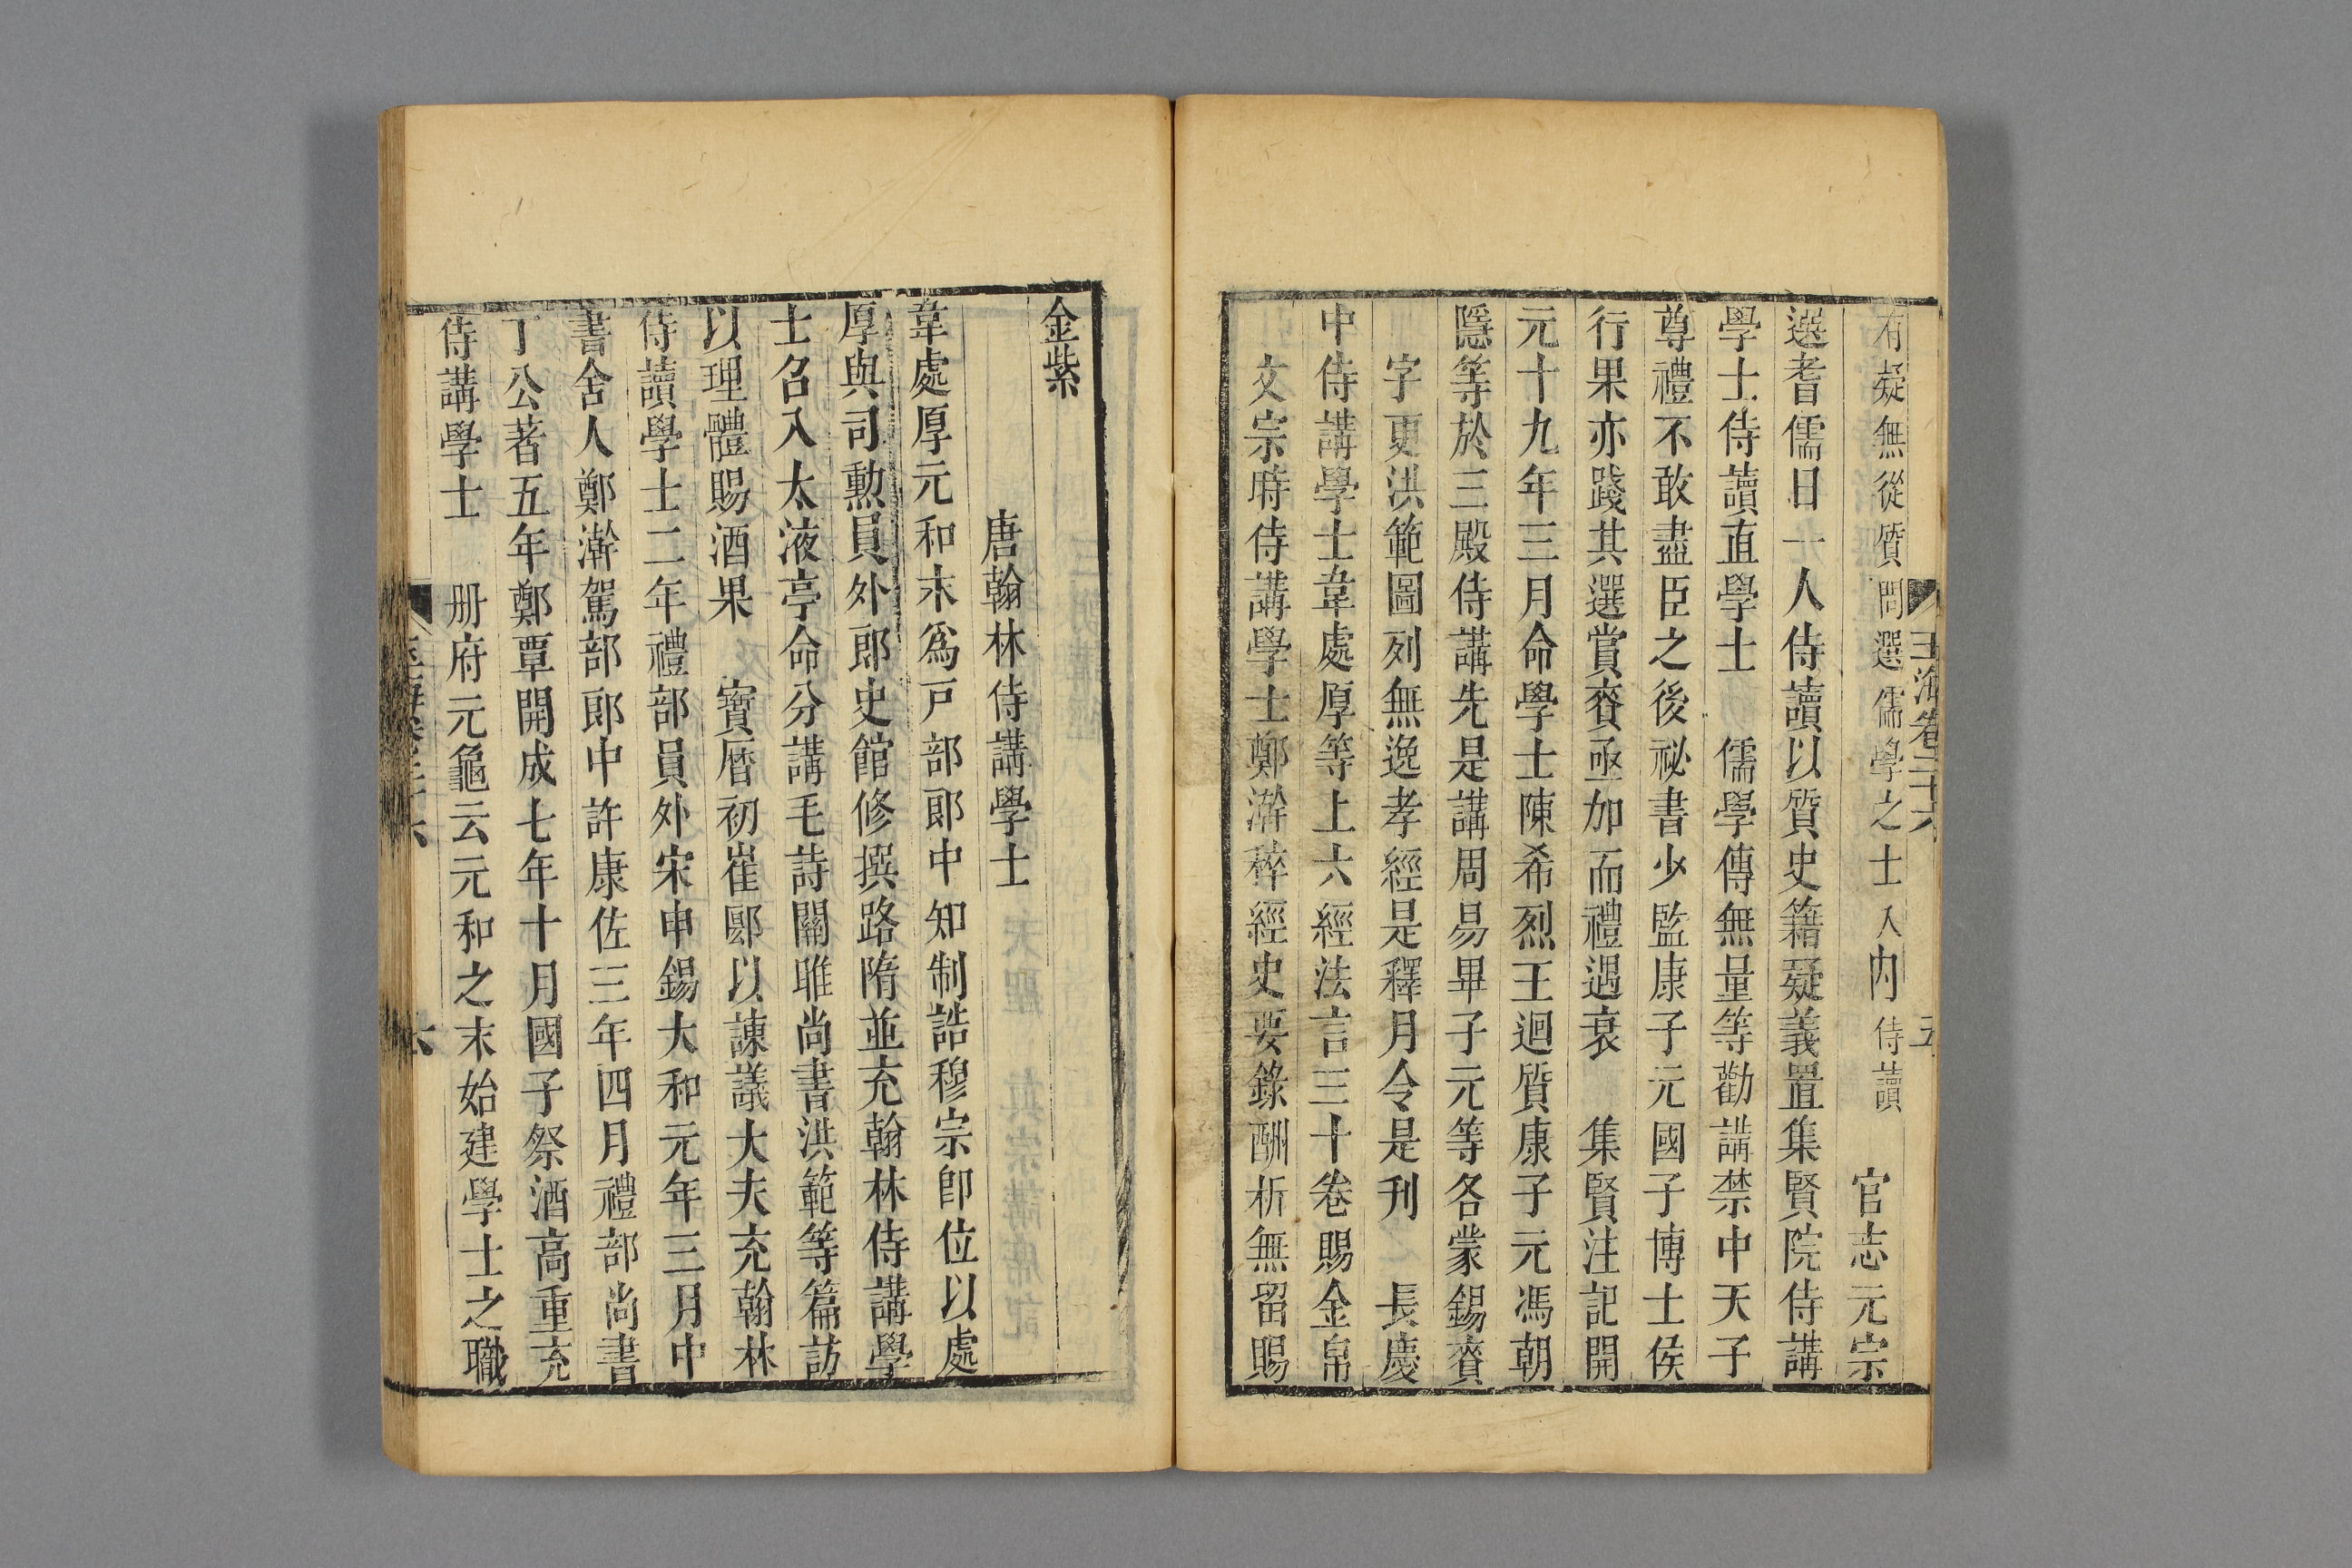 玉海卷二十六 五
有疑無從質問選儒學之士入內侍讀 官志元宗
選耆儒日一人侍讀以質史籍疑義置集賢院侍講
學士侍讀直學士 儒學傳無量等勸講禁中天子
尊禮不敢盡臣之後祕書少監康子元國子博士侯
行果亦踐其選賞賚亟加而禮遇衰 集賢注記開
元十九年三月命學士陳希烈王迴質康子元馮朝
隱等於三殿侍講先是講周易畢子元等各蒙錫賚
字更洪範圖列無逸孝經是釋月令是刋 長慶
中侍講學士韋處厚等上六經法言三十卷賜金帛
文宗時侍講學士鄭澣稡經史要錄酬析無留賜
金紫
唐翰林侍講學士
韋處厚元和末爲戸部郞中知制誥穆宗卽位以處
厚與司勲員外郎史館修撰路隋並充翰林侍講學
士召入太液亭命分講毛詩關雎尚書洪範等篇訪
以理體賜酒果 寳曆初崔郾以諫議大夫充翰林
侍讀學士二年禮部員外宋申錫大和元年三月中
書舍人鄭澣駕部郎中許康佐三年四月禮部尚書
丁公著五年鄭覃開成七年十月國子祭酒高重充
侍講學士 册府元龜云元和之末始建學士之職
六